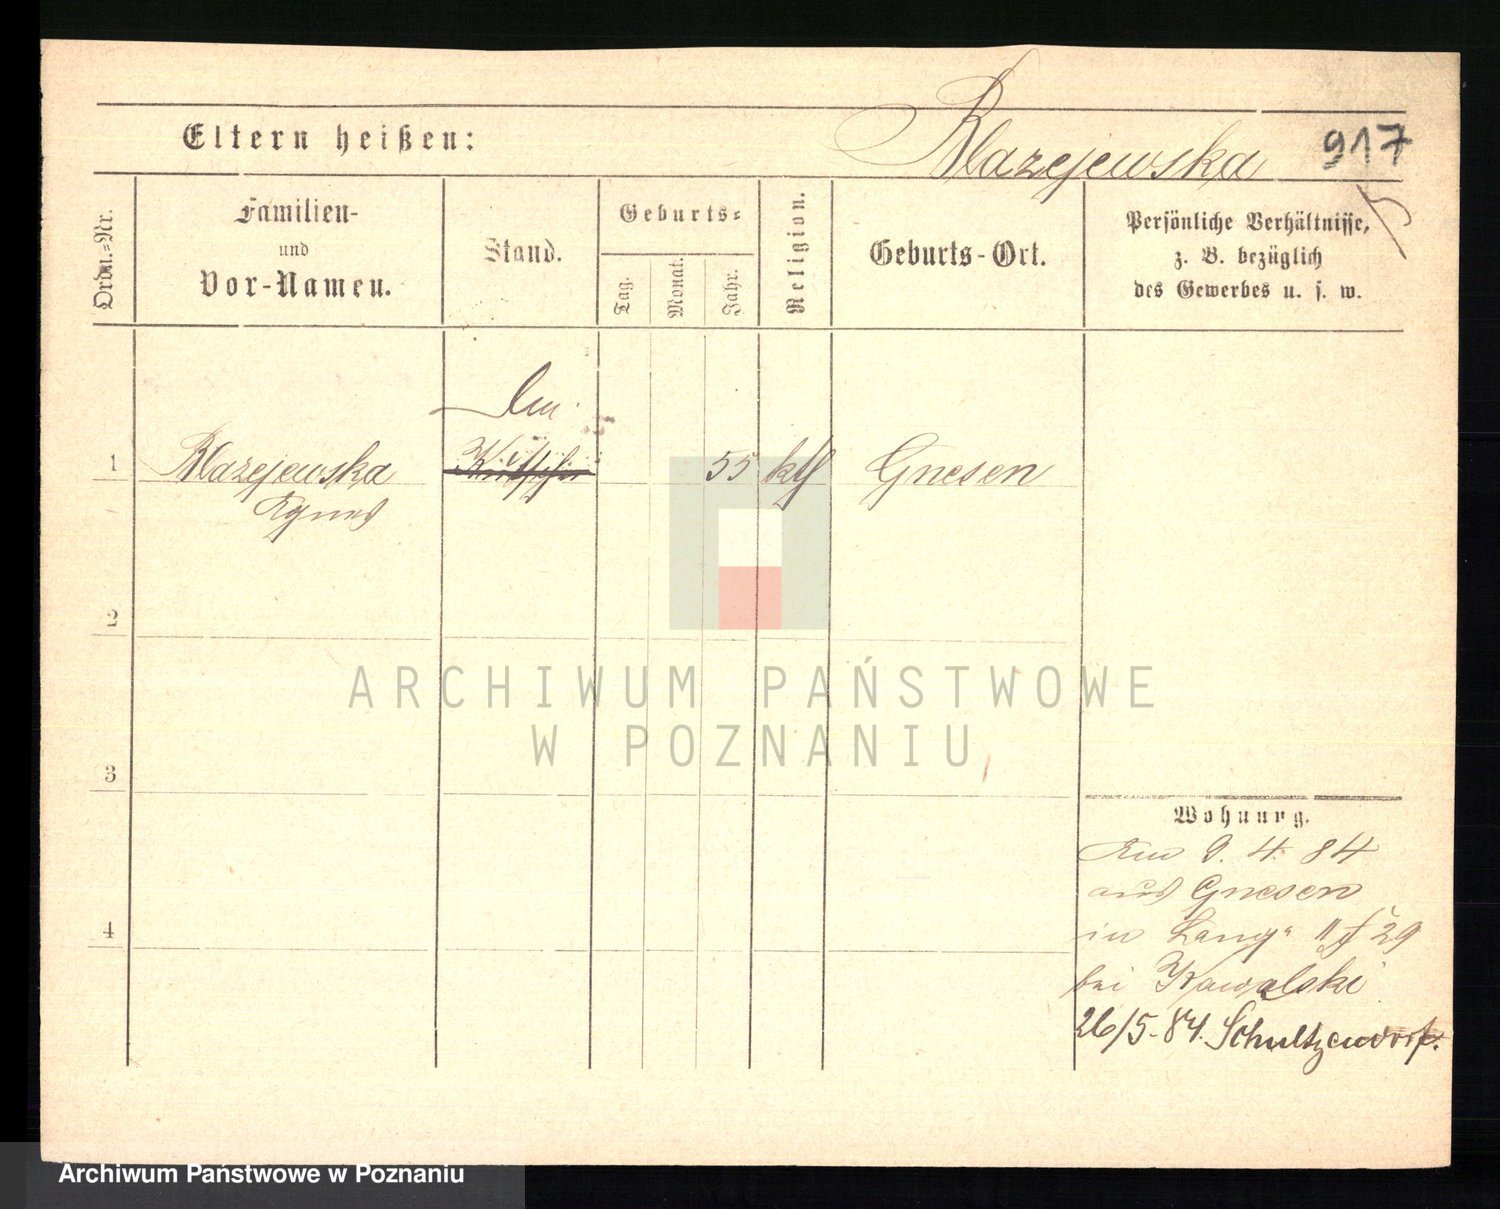 Eltern heißen:
Blazejewska 917
Ordn.=Nr.
Familien-
und
Vor-Namen.
Stand.
Geburts=
Tag.
Monat.
Jahr.
Religion.
Geburts-Ort.
Persönliche Verhältnisse,
z. B. bezüglich
des Gewerbes u. s. w.
1 Blazejewska 55 kth Gnesen
Agnes
2
3
4
Wohnung.
Am 9. 4. 84
aus Gnesen
in Lang 29
bei Kowalski
26/5.84. Schultzendorf.
ARCHIWUM PAŃSTWOWE
W POZNANIU
Archiwum Państwowe w Poznaniu